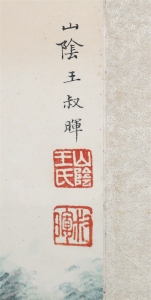 山陰王叔暉
山陰王氏
叔暉